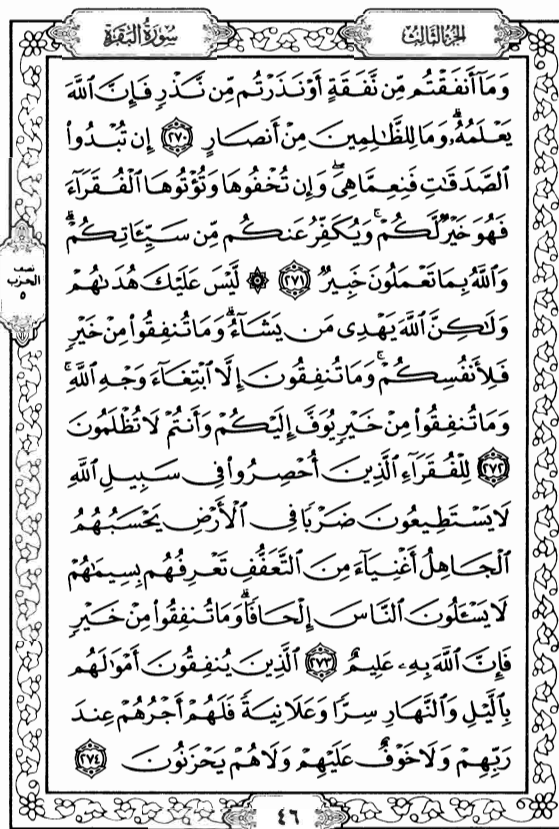 سُورَةُ البَقَرَةِ
الجزء الثالث
وَمَآ أَنفَقْتُم مِّن نَّفَقَةٍ أَوْ نَذَرْتُم مِّن نَّذْرٍ فَإِنَّ ٱللَّهَ
يَعْلَمُهُۥۗ وَمَا لِلظَّٰلِمِينَ مِنْ أَنصَارٍ ٢٧٠ إِن تُبْدُوا۟
ٱلصَّدَقَٰتِ فَنِعِمَّا هِىَۖ وَإِن تُخْفُوهَا وَتُؤْتُوهَا ٱلْفُقَرَآءَ
فَهُوَ خَيْرٌ لَّكُمْۚ وَيُكَفِّرُ عَنكُم مِّن سَيِّـَٔاتِكُمْۗ
وَٱللَّهُ بِمَا تَعْمَلُونَ خَبِيرٌ ٢٧١ ۞ لَّيْسَ عَلَيْكَ هُدَىٰهُمْ
نصف
الحزب
٥
وَلَٰكِنَّ ٱللَّهَ يَهْدِى مَن يَشَآءُۗ وَمَا تُنفِقُوا۟ مِنْ خَيْرٍ
فَلِأَنفُسِكُمْۚ وَمَا تُنفِقُونَ إِلَّا ٱبْتِغَآءَ وَجْهِ ٱللَّهِۚ
وَمَا تُنفِقُوا۟ مِنْ خَيْرٍ يُوَفَّ إِلَيْكُمْ وَأَنتُمْ لَا تُظْلَمُونَ
٢٧٢ لِلْفُقَرَآءِ ٱلَّذِينَ أُحْصِرُوا۟ فِى سَبِيلِ ٱللَّهِ
لَا يَسْتَطِيعُونَ ضَرْبًا فِى ٱلْأَرْضِ يَحْسَبُهُمُ
ٱلْجَاهِلُ أَغْنِيَآءَ مِنَ ٱلتَّعَفُّفِ تَعْرِفُهُم بِسِيمَٰهُمْ
لَا يَسْـَٔلُونَ ٱلنَّاسَ إِلْحَافًاۗ وَمَا تُنفِقُوا۟ مِنْ خَيْرٍ
فَإِنَّ ٱللَّهَ بِهِۦ عَلِيمٌ ٢٧٣ ٱلَّذِينَ يُنفِقُونَ أَمْوَٰلَهُم
بِٱلَّيْلِ وَٱلنَّهَارِ سِرًّا وَعَلَانِيَةً فَلَهُمْ أَجْرُهُمْ عِندَ
رَبِّهِمْ وَلَا خَوْفٌ عَلَيْهِمْ وَلَا هُمْ يَحْزَنُونَ ٢٧٤
٤٦